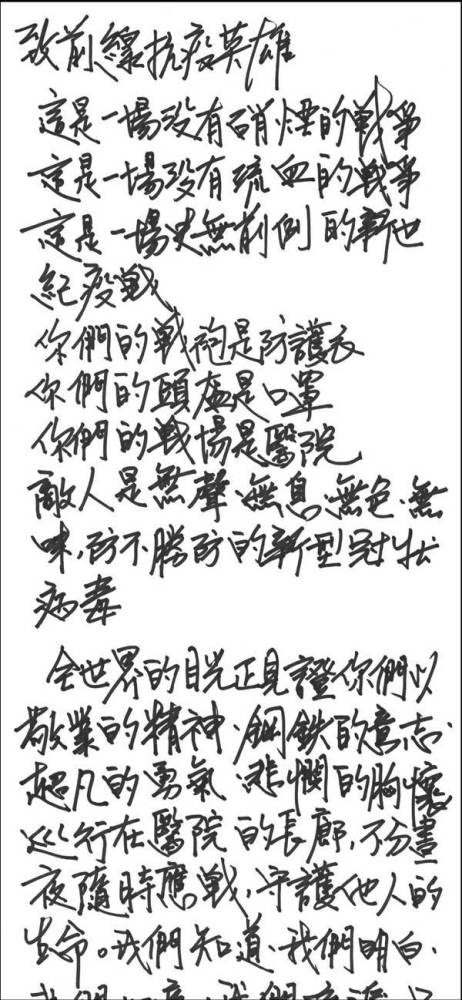 致前線抗疫英雄
這是一場没有硝煙的戦爭
這是一場没有流血的戦爭
這是一場史無前例的新世
紀疫戦、
你們的戦袍是防護衣
你們的頭盔是口罩
你們的戦場是醫院
敵人是無聲、無息、無色、無
味,防不勝防的新型冠狀
病毒
全世界的目光正見證你們以
敬業的精神、鋼鉄的意志、
超凡的勇氣、悲憫的胸懷
巡行在醫院的長廊,不分晝
夜隨時應戦,守護他人的
生命。我們知道、我們明白、